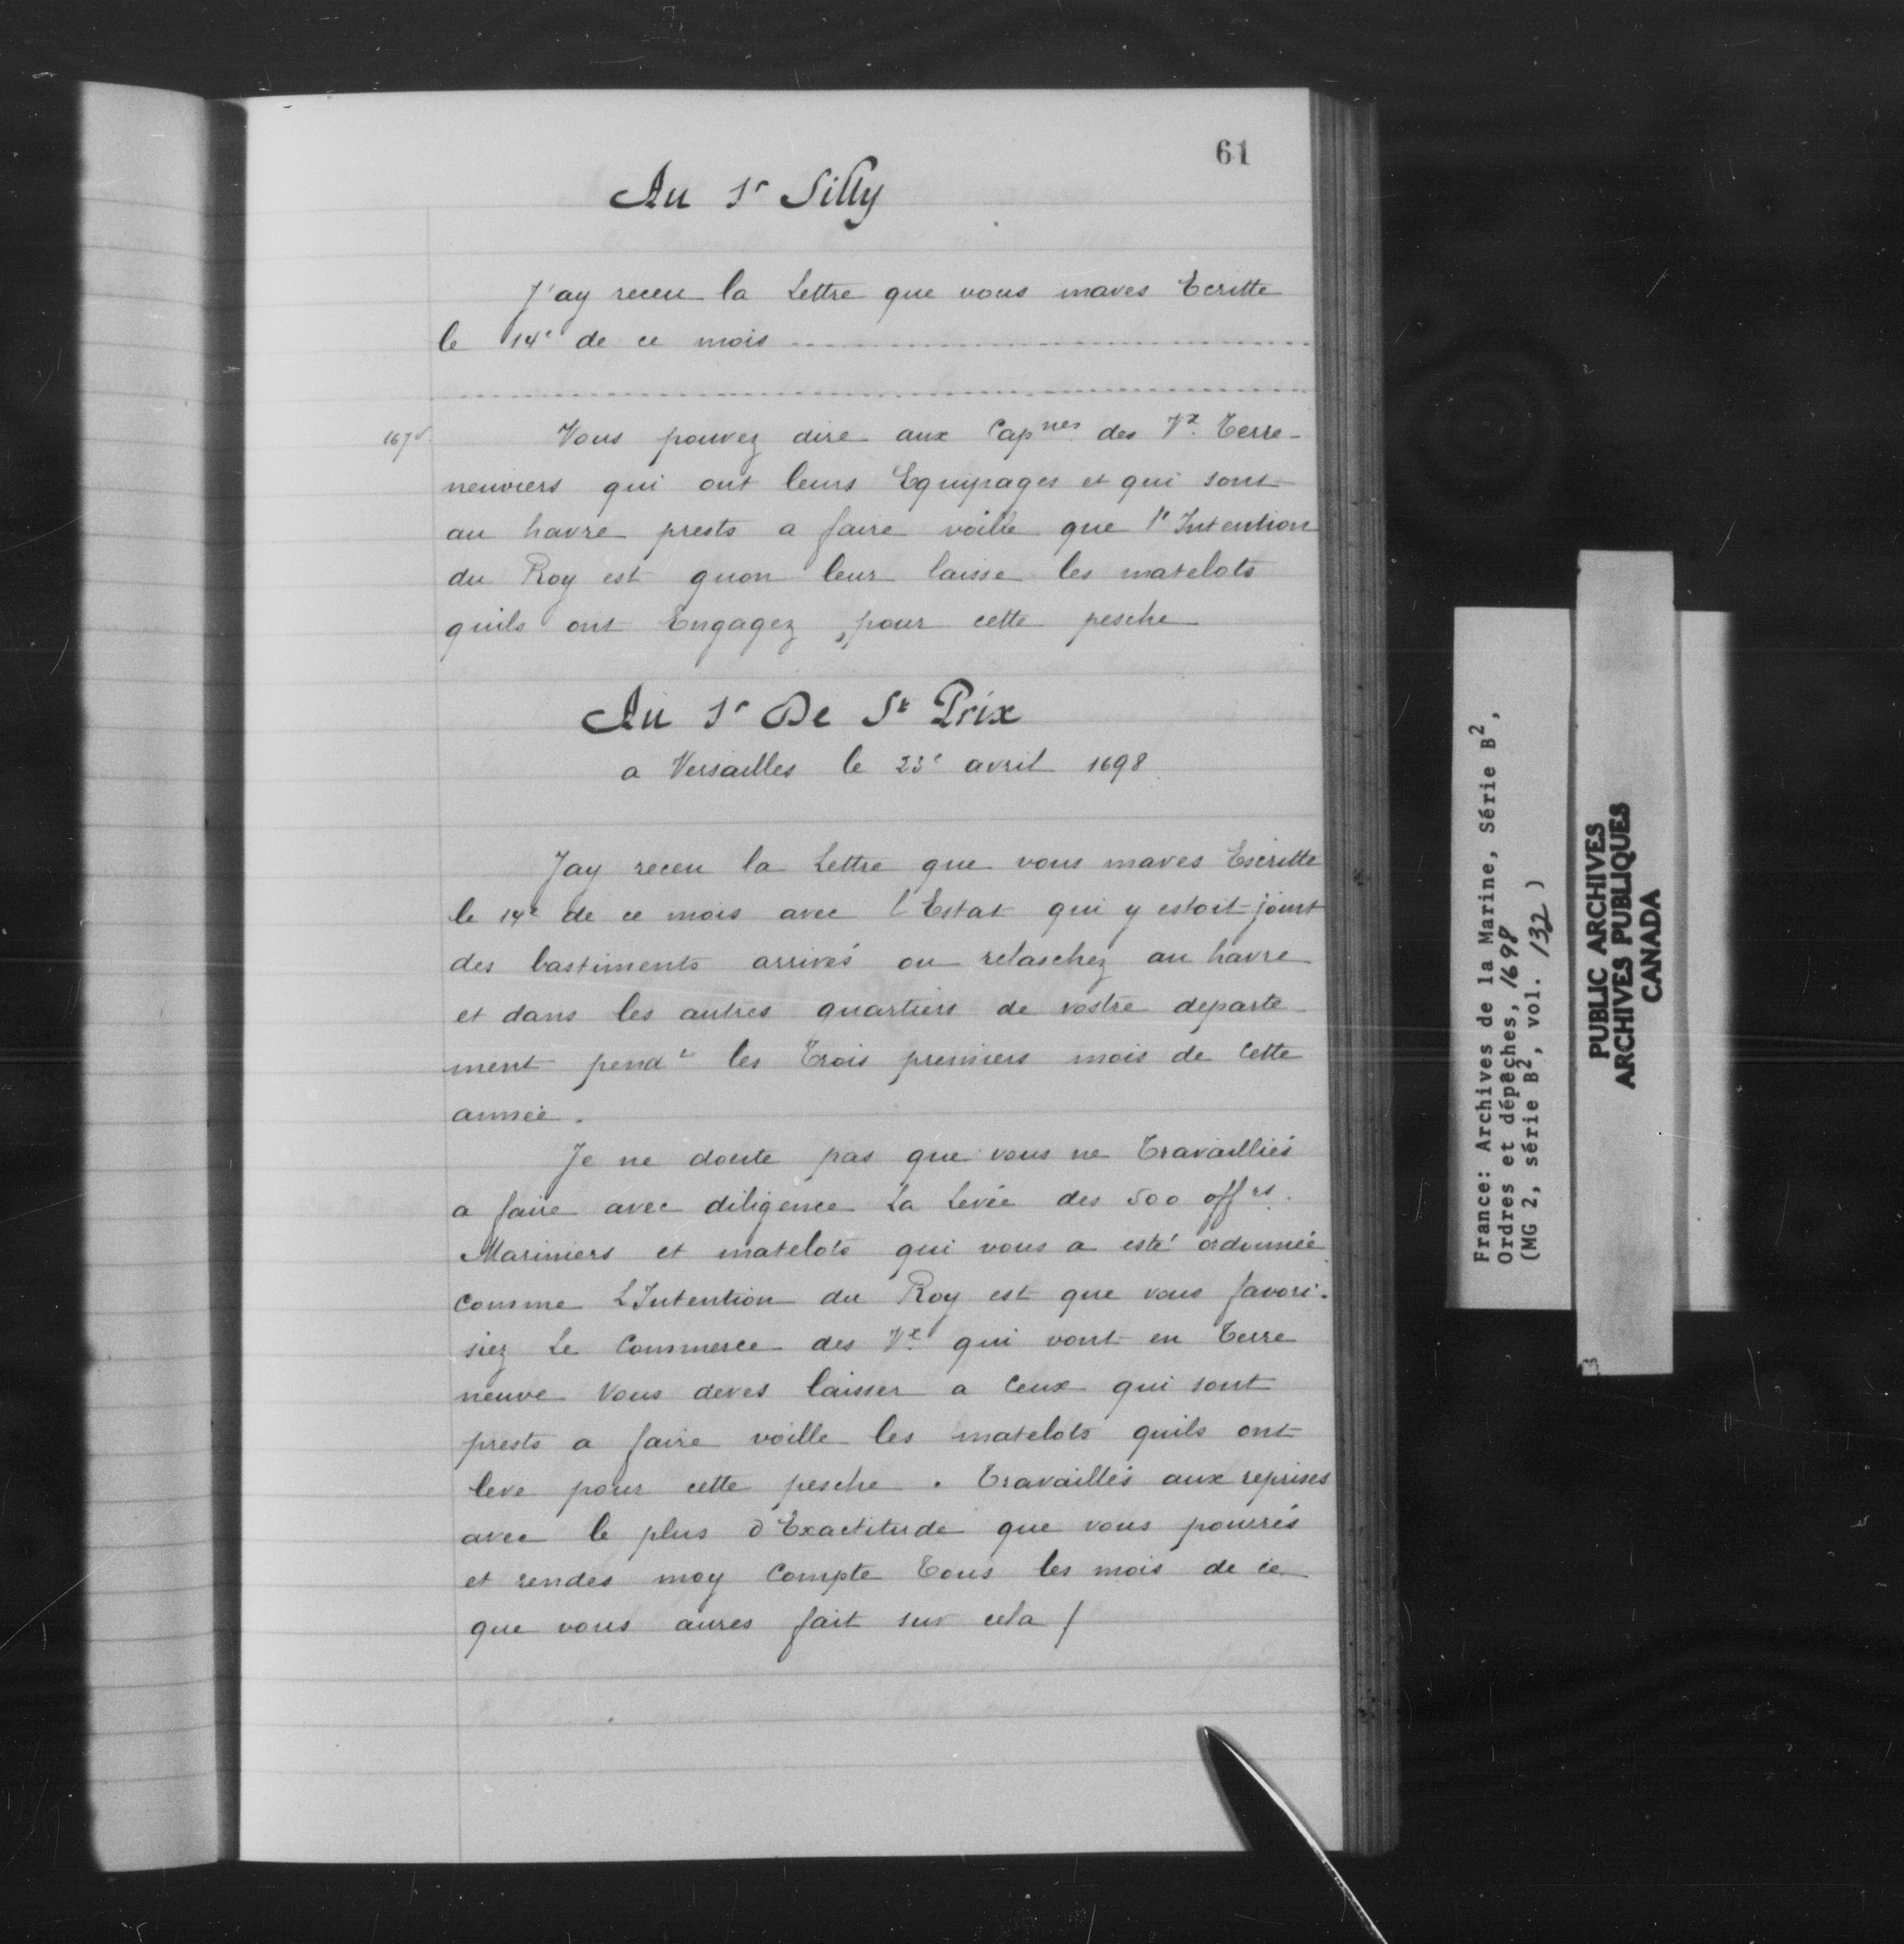 61
Au Sr Silly
J'ay receu la Lettre que vous maves Ecritte
le 14e de ce mois ........................
........................
167v
Vous pouvez dire aux Capnes des Vx. Terre-
neuviers qui ont leurs Equipages et qui sont
au havre prests a faire voille que l'Intention
du Roy est quon leur laisse les matelots
quils ont Engagez, pour cette pesche
Au Sr De St Prix
a Versailles le 23e avril 1698
Jay receu la Lettre que vous maves Escritte
le 14e de ce mois avec l'Estat qui y estoit joint
des bastiments arrivés ou relaschez au havre
et dans les autres quartiers de vostre departe-
ment pendt les Trois premiers mois de cette
année.
Je ne doute pas que vous ne Travailliés
a faire avec diligence La Levée des 500 offrs.
Mariniers et matelots qui vous a esté ordonnée
comme L'Intention du Roy est que vous favori-
siez Le Commerce des Vx. qui vont en Terre
neuve Vous deves laisser a Ceux qui sont
prests a faire voille les matelots quils ont
leve pour cette pesche. Travaillés aux reprises
avec le plus d'Exactitude que vous pourrés
et rendes moy Compte Tous les mois de ce
que vous aures fait sur cela /
France: Archives de la Marine, Série B2,
Ordres et dépêches, 1698
(MG 2, série B2, vol. 132)
PUBLIC ARCHIVES
ARCHIVES PUBLIQUES
CANADA